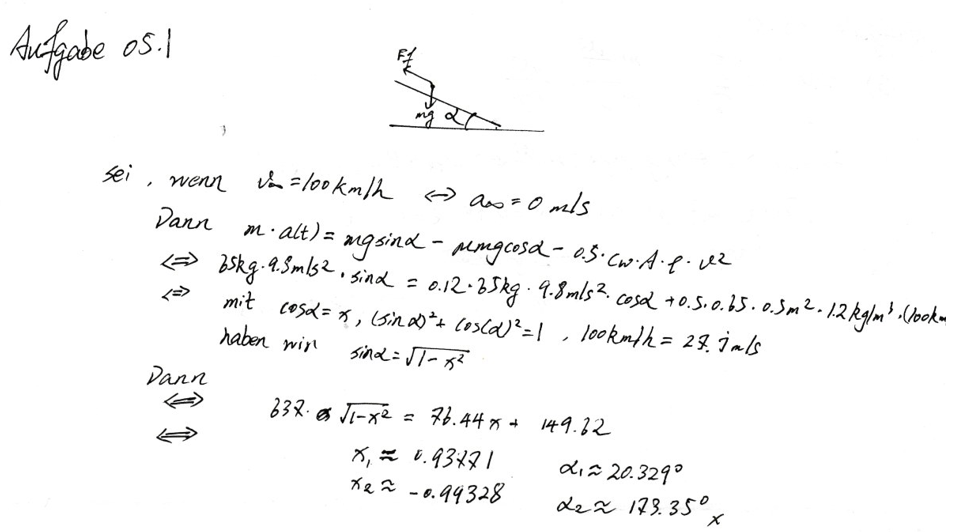 Aufgabe 05.1
Ff
mg α
sei, wenn v∞ = 100km/h <=> a∞ = 0 m/s
Dann m·a(t) = mgsinα - μmgcosα - 0.5·cw·A·ρ·v2
<=> 65kg·9.8m/s2·sinα = 0.12·65kg·9.8m/s2·cosα + 0.5·0.65·0.5m2·1.2kg/m3·(100km
<=> mit cosα = x, (sinα)2 + cos(α)2 = 1, 100km/h = 27.7m/s
haben wir sinα = √1-x2
Dann
<=> 637·√1-x2 = 76.44x + 149.62
<=>
x1 ≈ 0.93771 α1 ≈ 20.329°
x2 ≈ -0.99328 α2 ≈ 173.35° x